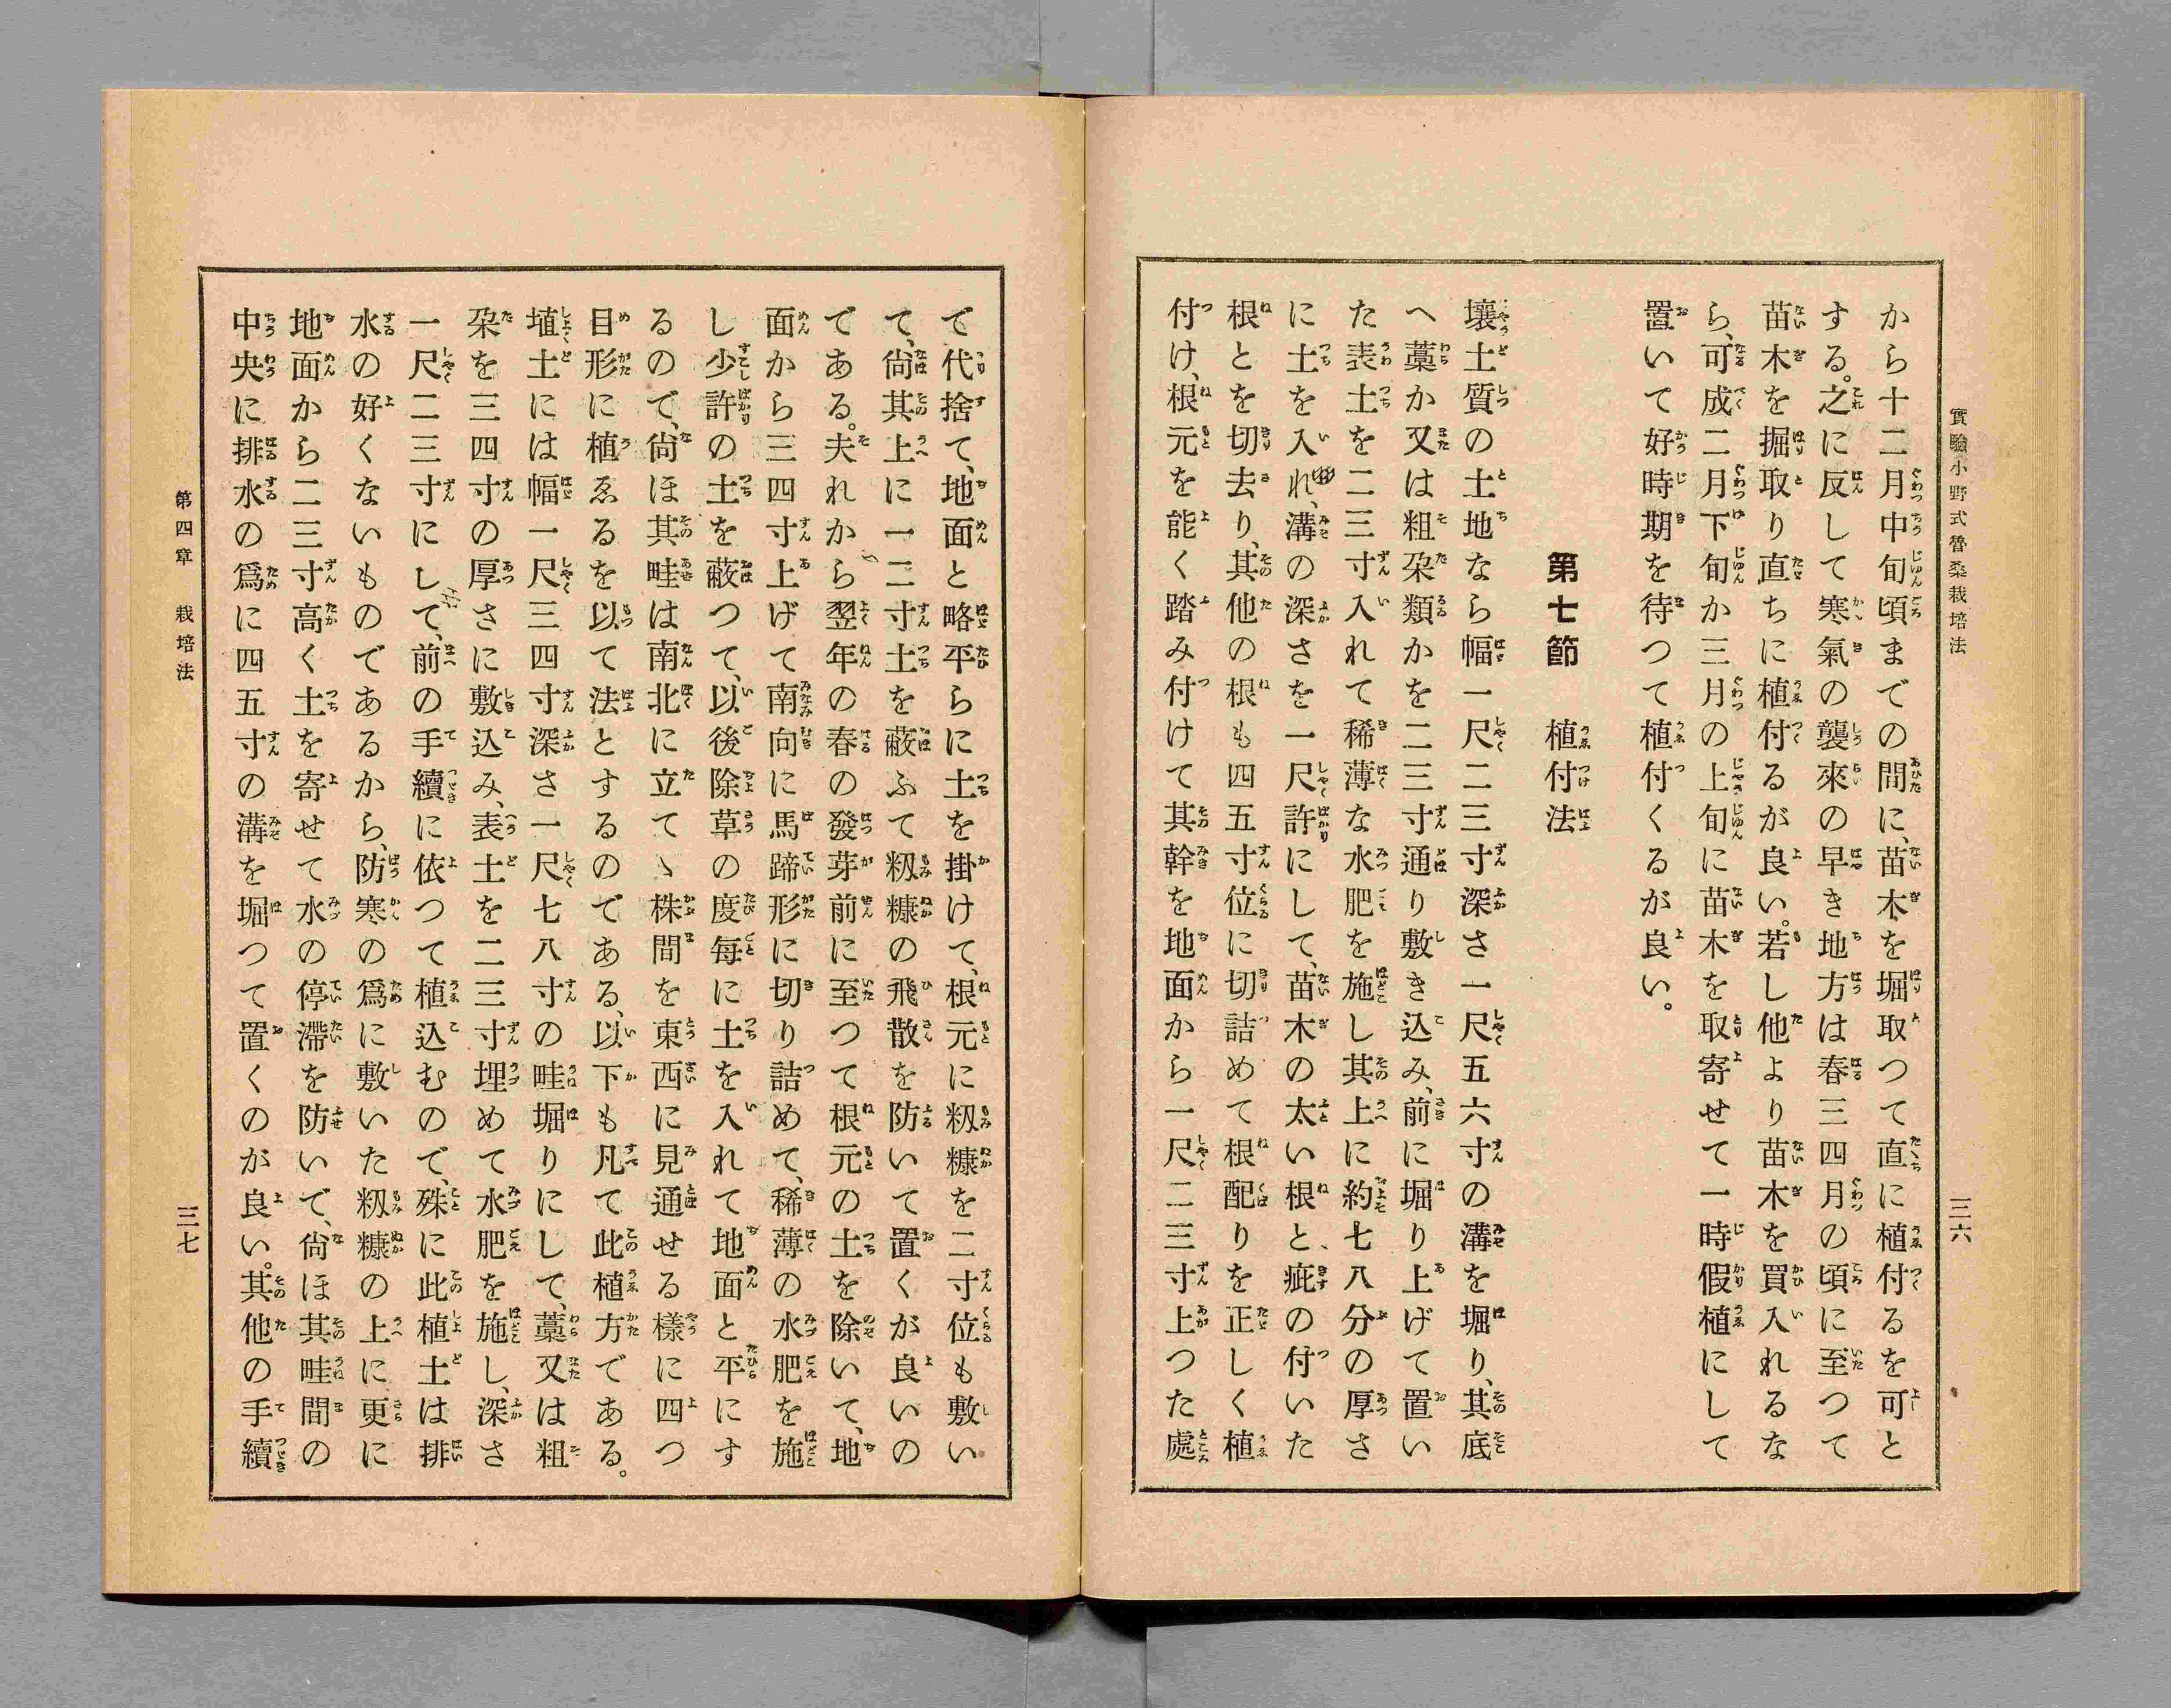 實驗小野式魯桑栽培法
三六
から十二月中旬頃までの間に、苗木を堀取つて直に植付るを可と
する。之に反して寒氣の襲來の早き地方は春三四月の頃に至つて
苗木を掘取り直ちに植付るが良い。若し他より苗木を買入れるな
ら、可成二月下旬か三月の上旬に苗木を取寄せて一時假植にして
置いて好時期を待つて植付くるが良い。
第七節 植付法
壤土質の土地なら幅一尺二三寸深さ一尺五六寸の溝を堀り、其底
へ藁か又は粗朶類かを二三寸通り敷き込み、前に堀り上げて置い
た表土を二三寸入れて稀薄な水肥を施し其上に約七八分の厚さ
に土を入れ、溝の深さを一尺許にして、苗木の太い根と、疵の付いた
根とを切去り、其他の根も四五寸位に切詰めて根配りを正しく植
付け、根元を能く踏み付けて其幹を地面から一尺二三寸上つた處
で代捨て、地面と略平らに土を掛けて、根元に籾糠を二寸位も敷い
て、尙其上に一二寸土を蔽ふて籾糠の飛散を防いて置くが良いの
である。夫れから翌年の春の發芽前に至つて根元の土を除いて、地
面から三四寸上げて南向に馬蹄形に切り詰めて、稀薄の水肥を施
し少許の土を蔽つて、以後除草の度每に土を入れて地面と平にす
るので、尙ほ其畦は南北に立てゝ株間を東西に見通せる樣に四つ
目形に植ゑるを以て法とするのである、以下も凡て此植方である。
埴土には幅一尺三四寸深さ一尺七八寸の畦堀りにして、藁又は粗
朶を三四寸の厚さに敷込み、表土を二三寸埋めて水肥を施し、深さ
一尺二三寸にして、前の手續に依つて植込むので、殊に此植土は排
水の好くないものであるから、防寒の爲に敷いた籾糠の上に更に
地面から二三寸高く土を寄せて水の停滯を防いで、尙ほ其畦間の
中央に排水の爲に四五寸の溝を堀つて置くのが良い。其他の手續
第四章 栽培法
三七